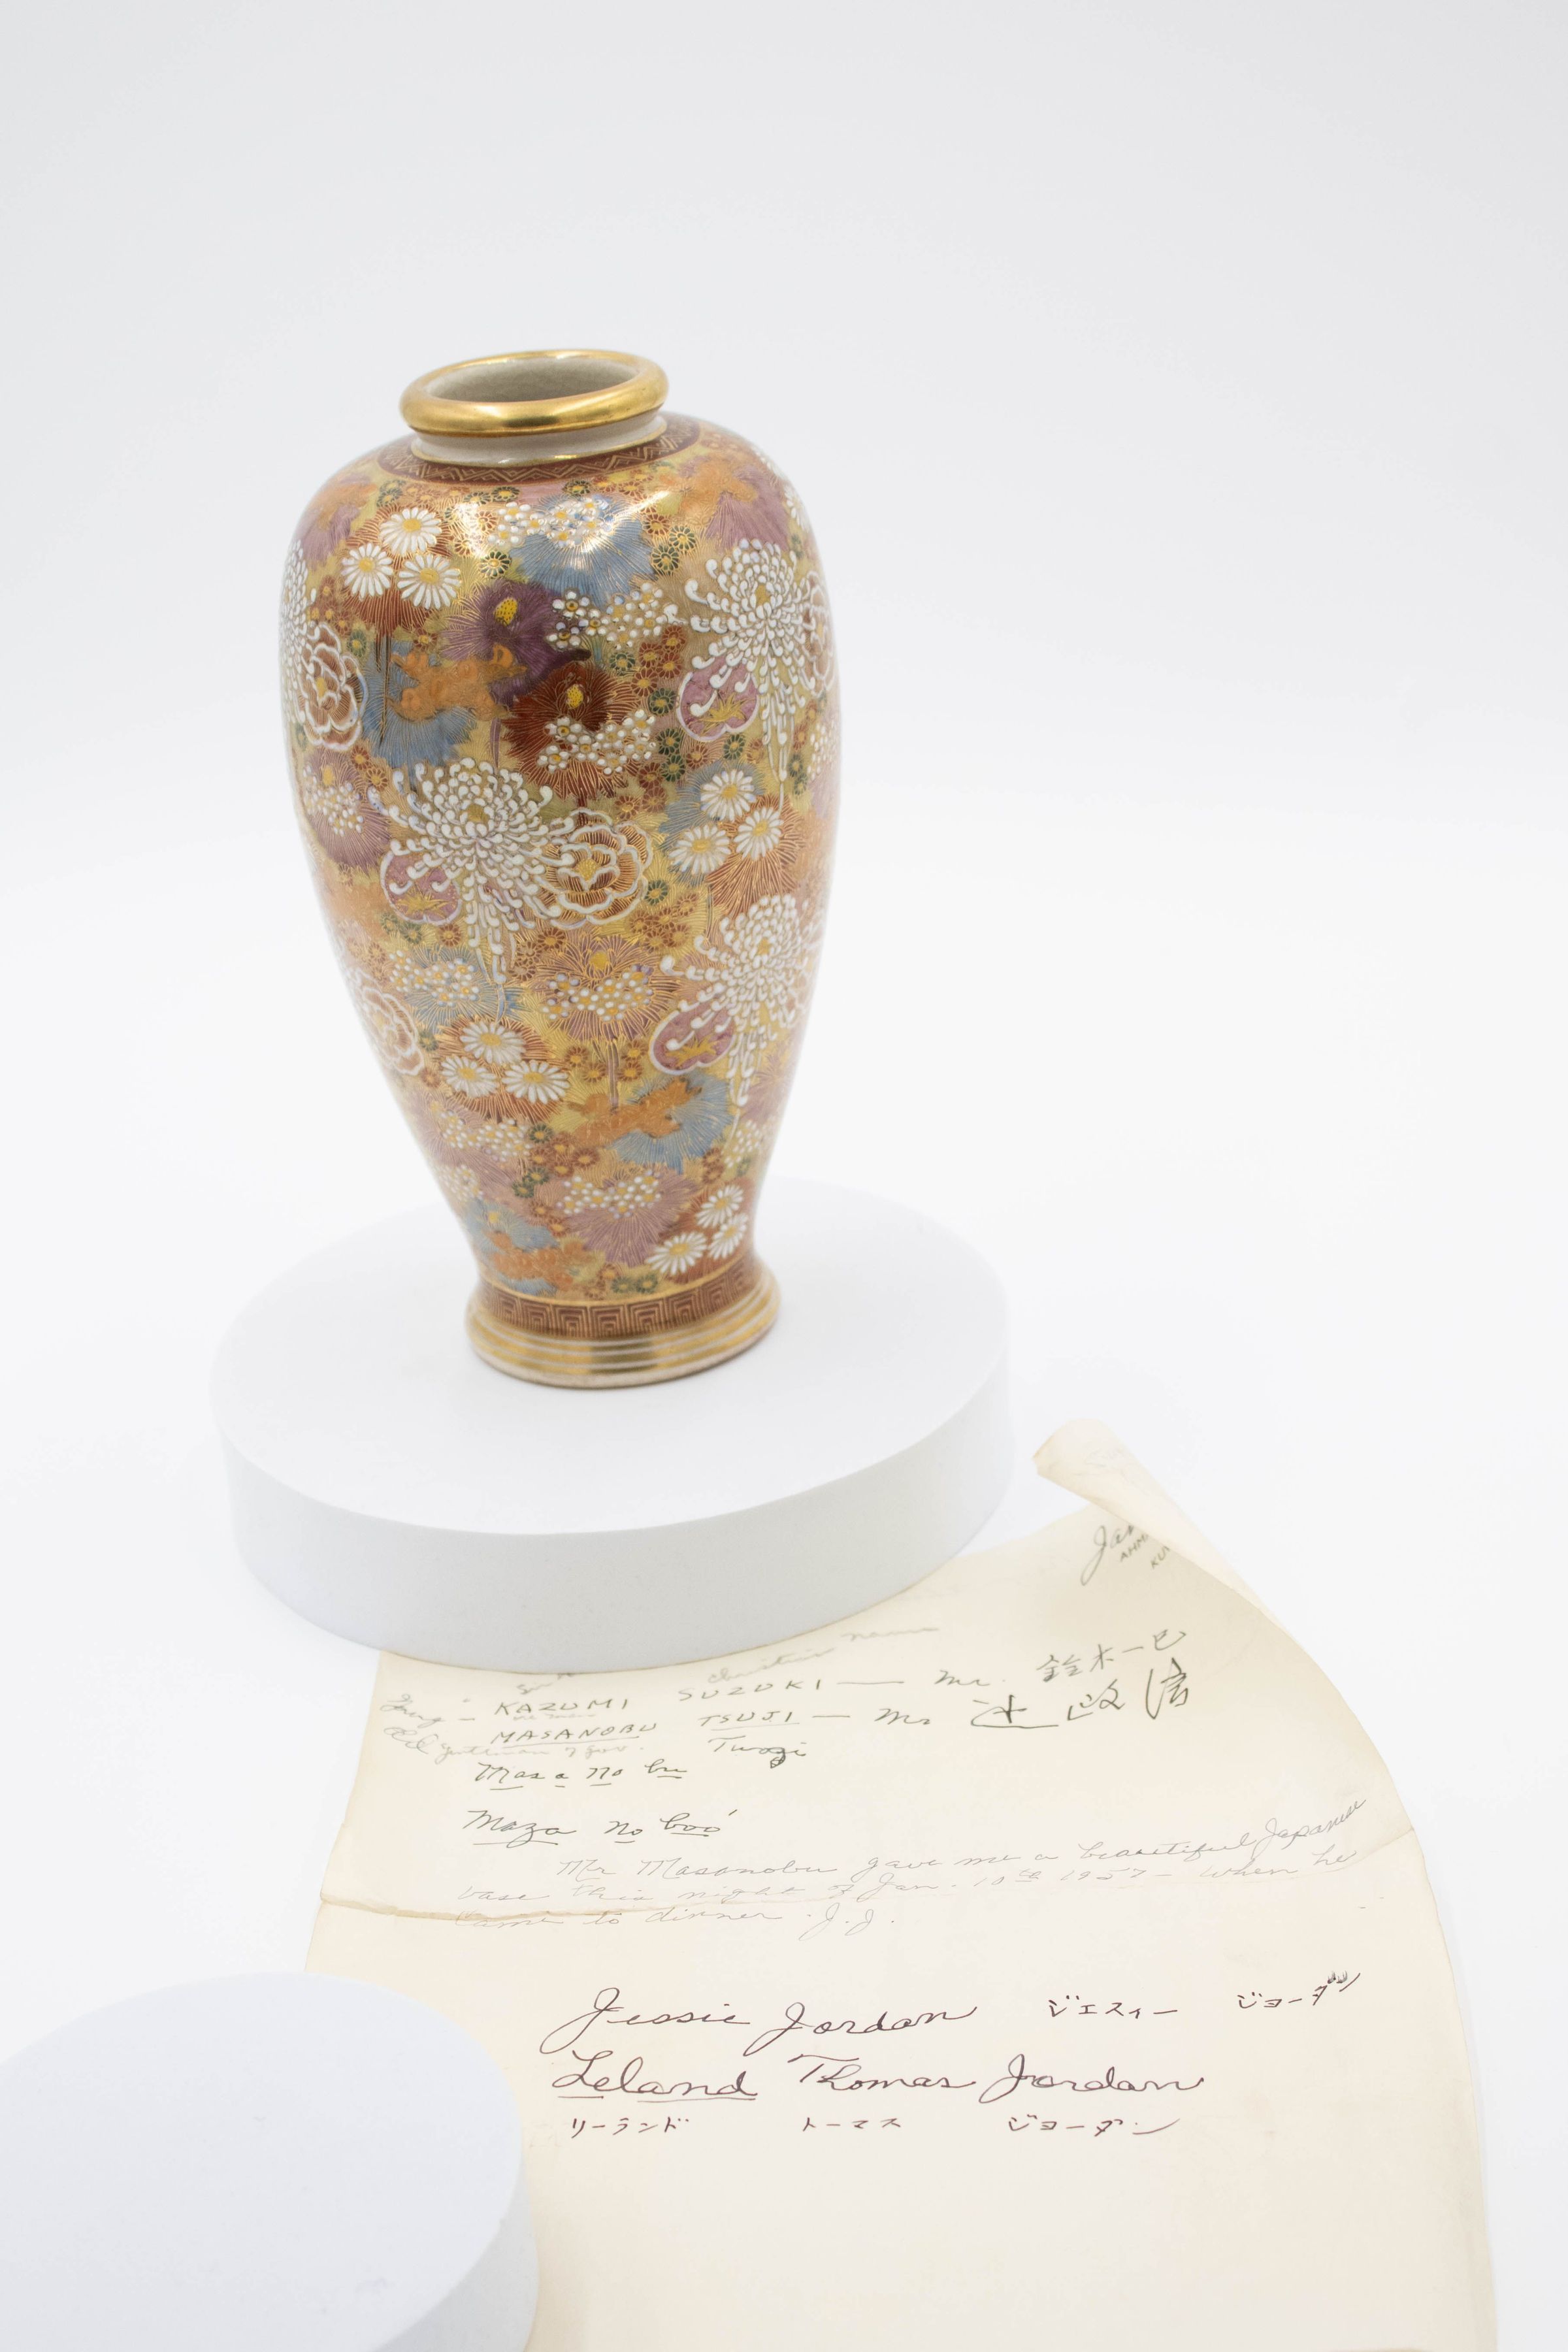 Jan
AHM
KU
Christian name
Young - KAZUMI SUZUKI — Mr. 鈴木一巳
the man
Old - MASANOBU TSUJI — Mr 辻政信
gentleman of gov. Tusgi
Mas a No bu
Maza no boo'
Mr Masanobu gave me a beautiful Japanese
vase this night of Jan. 10th 1957 - when he
came to dinner. J.J.
Jessie Jordan ジエスィー ジョーダン
Leland Thomas Jordan
リーランド トーマス ジョーダン